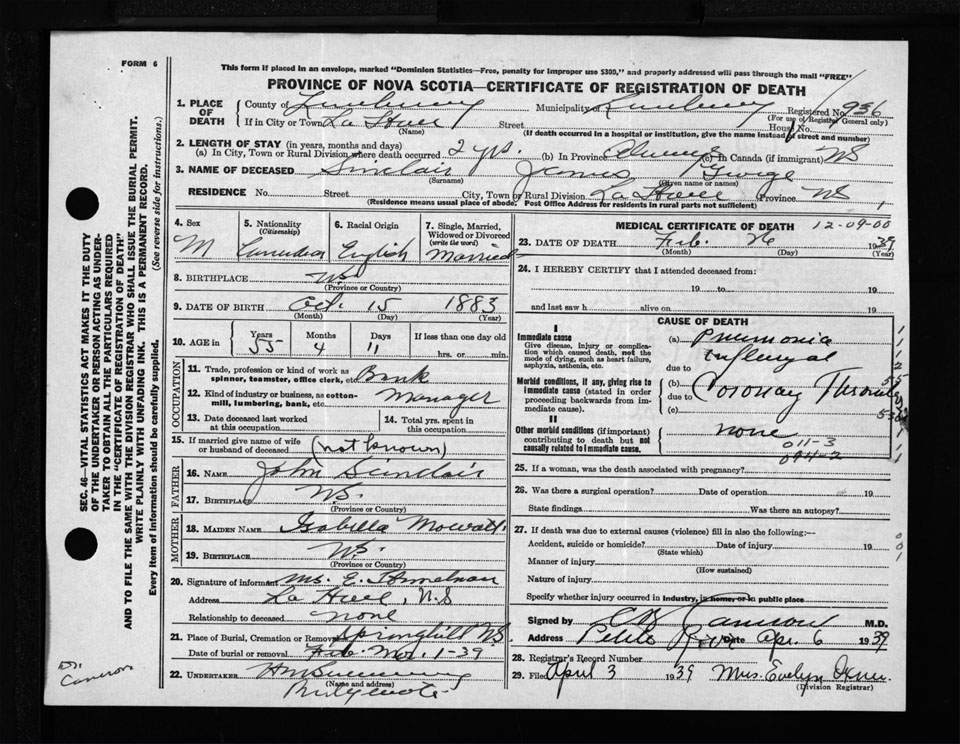 FORM 6
This form if placed in an envelope, marked "Dominion Statistics—Free, penalty for improper use $300," and properly addressed will pass through the mail "FREE"
PROVINCE OF NOVA SCOTIA—CERTIFICATE OF REGISTRATION OF DEATH
1. PLACE OF DEATH County of Lunenburg Municipality of Lunenburg Registered No. 936
(For use of Registrar General only)
If in City or Town La Have Street House No.
(Name) (If death occurred in a hospital or institution, give the name instead of street and number)
2. LENGTH OF STAY (in years, months and days)
(a) In City, Town or Rural Division where death occurred 2 yrs. (b) In Province Always (c) In Canada (if immigrant) NS
3. NAME OF DECEASED Sinclair James George
(Surname) (Given name or names)
RESIDENCE No. Street City, Town or Rural Division La Have Province NS 1
(Residence means usual place of abode. Post Office Address for residents in rural parts not sufficient)
4. Sex 5. Nationality (Citizenship) 6. Racial Origin 7. Single, Married, Widowed or Divorced (write the word)
M Canadian English Married
8. BIRTHPLACE NS.
(Province or Country)
9. DATE OF BIRTH Oct. 15 1883
(Month) (Day) (Year)
10. AGE in Years Months Days If less than one day old
55 4 11 hrs. or min.
OCCUPATION
11. Trade, profession or kind of work as spinner, teamster, office clerk, etc. Bank
12. Kind of industry or business, as cotton-mill, lumbering, bank, etc. Manager
13. Date deceased last worked at this occupation 14. Total yrs. spent in this occupation
15. If married give name of wife or husband of deceased (not known)
FATHER
16. NAME John Sinclair
17. BIRTHPLACE NS.
(Province or Country)
MOTHER
18. MAIDEN NAME Isabella Mowatt
19. BIRTHPLACE NS.
(Province or Country)
20. Signature of informant Mrs. E.
Address La Have, N.S
Relationship to deceased none
21. Place of Burial, Cremation or Removal Springhill NS.
Date of burial or removal Feb. Mar. 1-39
22. UNDERTAKER
(Name and address)
MEDICAL CERTIFICATE OF DEATH 12-09-00
23. DATE OF DEATH Feb. 26 1939
(Month) (Day) (Year)
24. I HEREBY CERTIFY that I attended deceased from:
19 to 19
and last saw h alive on 19
CAUSE OF DEATH
I
Immediate cause
Give disease, injury or complication which caused death, not the mode of dying, such as heart failure, asphyxia, asthenia, etc.
(a) Pneumonia
Influenzal
due to
Morbid conditions, if any, giving rise to immediate cause (stated in order proceeding backwards from immediate cause).
(b) Coronary
due to
(c)
II
Other morbid conditions (if important) contributing to death but not causally related to immediate cause.
none
011-3
094-2
25. If a woman, was the death associated with pregnancy?
26. Was there a surgical operation? Date of operation 19
State findings Was there an autopsy?
27. If death was due to external causes (violence) fill in also the following:—
Accident, suicide or homicide? Date of injury 19
(State which)
Manner of injury
(How sustained)
Nature of injury
Specify whether injury occurred in industry, in home, or in public place
Signed by M.D.
Address Petite Riviere Date Apr. 6 1939
28. Registrar's Record Number
29. Filed April 3 1939 Mrs. Evelyn
(Division Registrar)
Dr. Cameron
SEC. 46—VITAL STATISTICS ACT MAKES IT THE DUTY
OF THE UNDERTAKER OR PERSON ACTING AS UNDER-
TAKER TO OBTAIN ALL THE PARTICULARS REQUIRED
IN THE "CERTIFICATE OF REGISTRATION OF DEATH"
AND TO FILE THE SAME WITH THE DIVISION REGISTRAR WHO SHALL ISSUE THE BURIAL PERMIT.
WRITE PLAINLY WITH UNFADING INK. THIS IS A PERMANENT RECORD.
Every item of information should be carefully supplied. (See reverse side for instructions.)